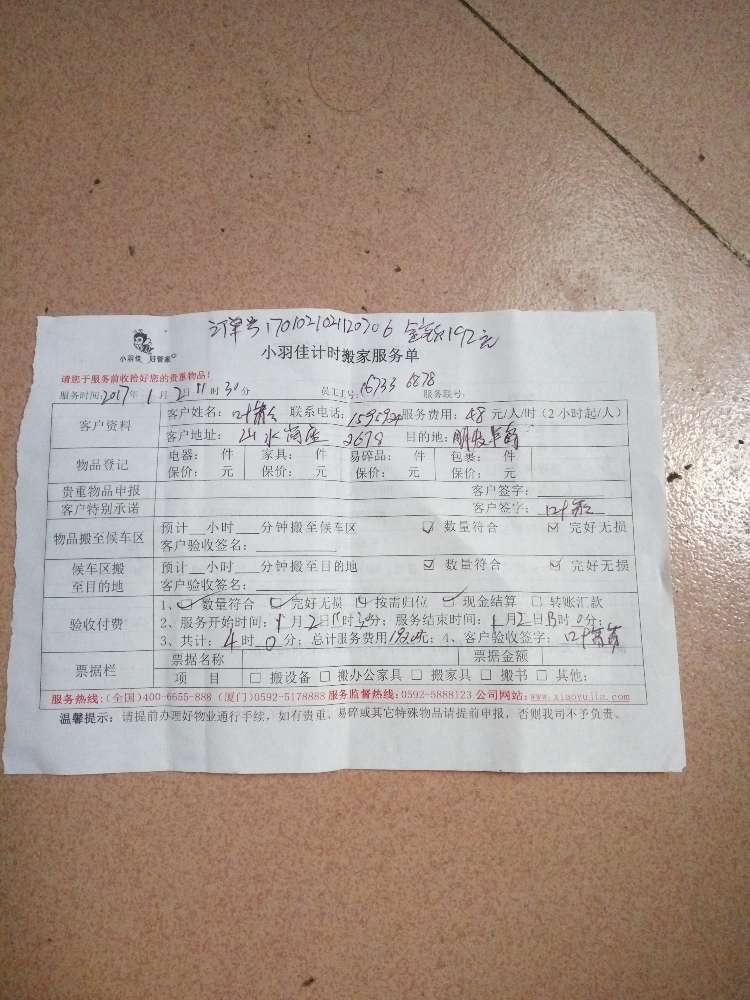 订单号170102102120706 金额192元
小羽佳 好管家
小羽佳计时搬家服务单
请您于服务前收拾好您的贵重物品!
服务时间:2017年1月2日11时30分 员工工号:16733 6878 服务联号:
客户资料 客户姓名: 联系电话: 服务费用: 48 元/人/时(2小时起/人)
客户地址: 山水尚座 目的地:
物品登记 电器: 件 家具: 件 易碎品: 件 包裹: 件
保价: 元 保价: 元 保价: 元 保价: 元
贵重物品申报 客户签字:
客户特别承诺 客户签字:
物品搬至候车区 预计__小时___分钟搬至候车区 ☑ 数量符合 ☑ 完好无损
客户验收签名:
候车区搬至目的地 预计__小时___分钟搬至目的地 ☑ 数量符合 ☑ 完好无损
客户验收签名:
验收付费 1、☑ 数量符合 ☑ 完好无损 ☑ 按需归位 ☑ 现金结算 □ 转账汇款
2、服务开始时间:1月2日11时30分; 服务结束时间:1月2日13时0分;
3、共计:4时0分; 总计服务费用192元; 4、客户验收签字:
票据栏 票据名称 票据金额
项 目 □ 搬设备 □ 搬办公家具 □ 搬家具 □ 搬书 □ 其他:
服务热线:(全国)400-6655-888 (厦门)0592-5178883 服务监督热线:0592-5888123 公司网站:www.xiaoyujia.com
温馨提示: 请提前办理好物业通行手续, 如有贵重、易碎或其它特殊物品请提前申报, 否则我司不予负责。